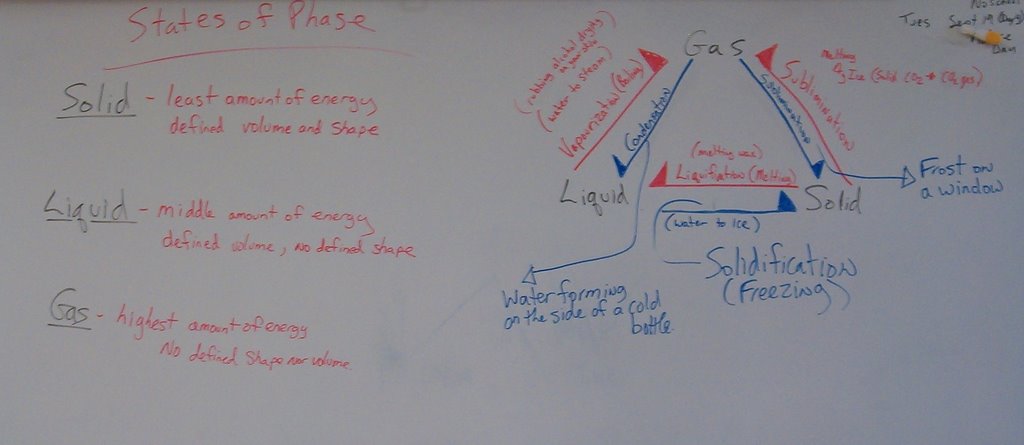 States of Phase
Solid - least amount of energy
defined volume and shape
Liquid - middle amount of energy
defined volume, No defined shape
Gas - highest amount of energy
No defined shape nor volume
Gas
(rubbing alcohol drying
(water to steam)
Vapourization (Boiling)
Condensation
Sublimination
Melting
Ice (Solid CO2 → CO2 gas)
Sublimination
Liquid
(melting wax)
Liquifiation (Melting)
Solid
(water to Ice)
Solidification
(Freezing)
Frost on
a window
Water forming
on the side of a cold
bottle.
Tues Sept 19